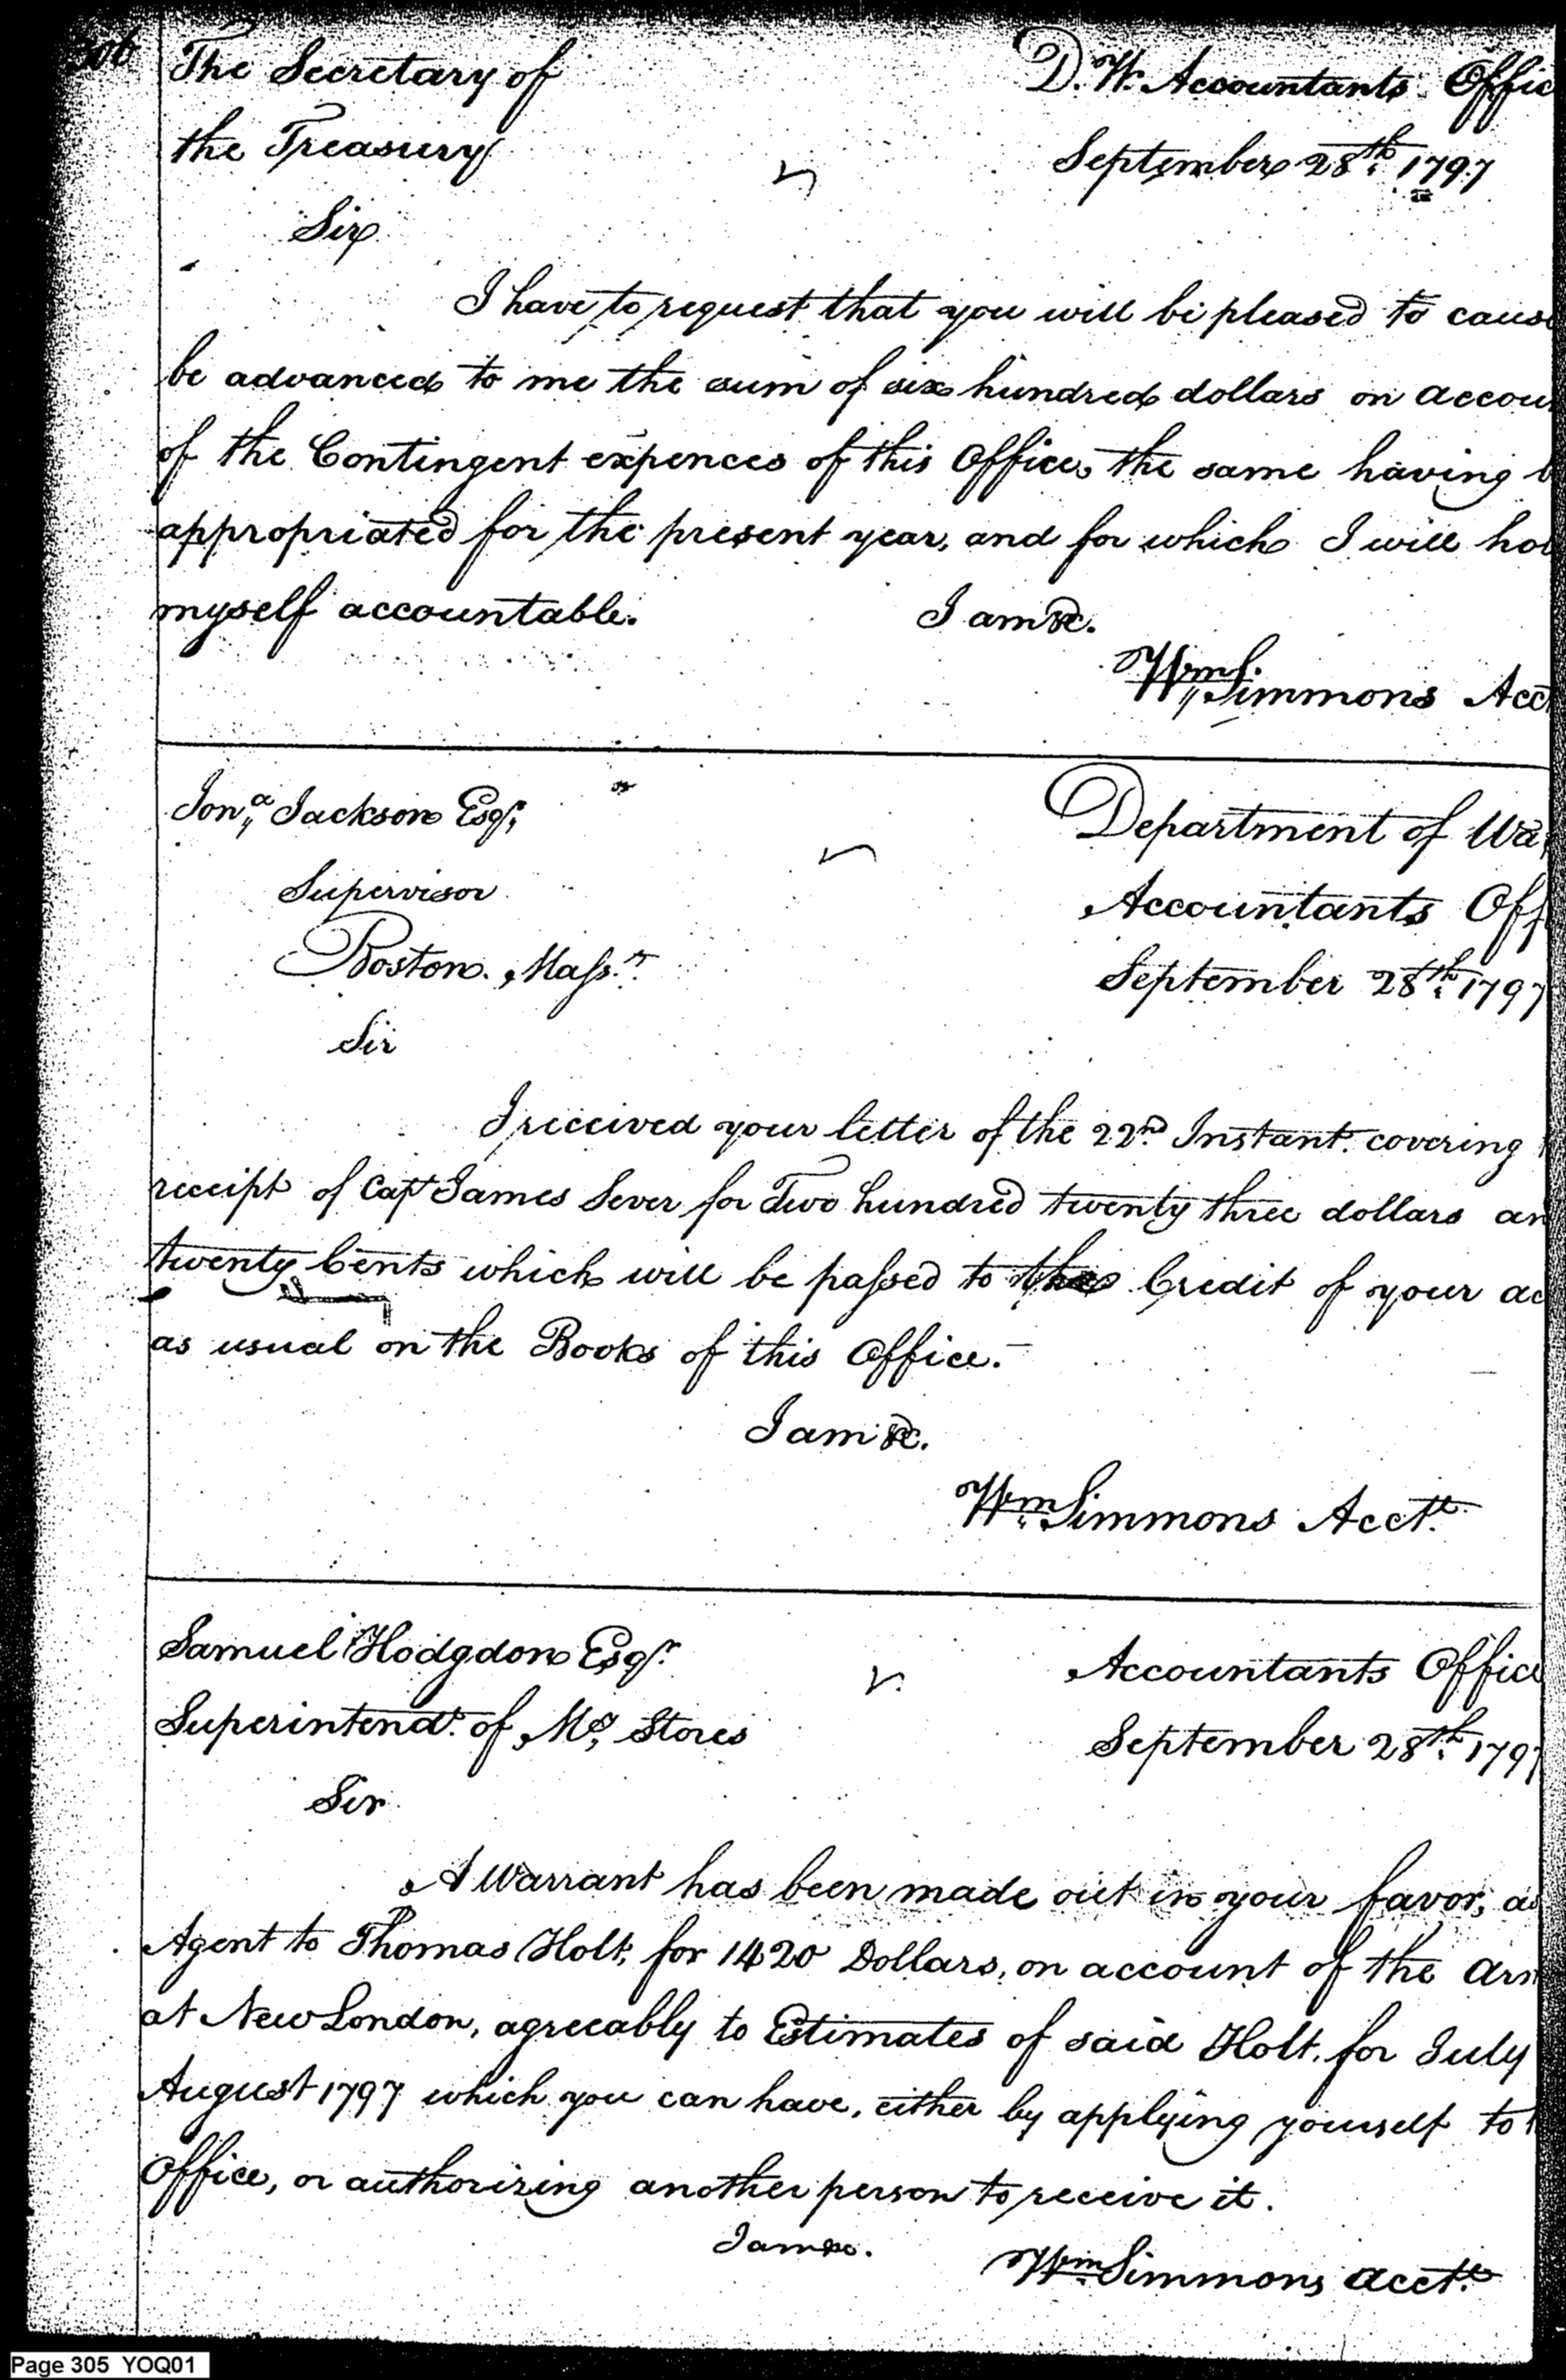 306
The Secretary of
the Treasury
D. W. Accountants Offic
September 28th 1797
Sir
I have to request that you will be pleased to cause
be advanced to me the sum of six hundred dollars on accou
of the Contingent expences of this Office, the same having b
appropriated for the present year, and for which I will hol
myself accountable.
I am &c.
Wm Simmons Acct
Jona Jackson Esqr,
Supervisor
Boston. Massts
Department of Wa
Accountants Off
September 28th 1797
Sir
I received your letter of the 22nd Instant. covering
receipt of Capt James Sever for Two hundred twenty three dollars an
twenty Cents which will be passed to the Credit of your ac
as usual on the Books of this Office.
I am &c.
Wm Simmons Acctt.
Samuel Hodgdon Esqr
Superintendt. of My, Stores
Accountants Office
September 28th. 1797
Sir
A Warrant has been made out in your favor, as
Agent to Thomas Holt, for 1420 Dollars, on account of the arm
at New London, agreeably to Estimates of said Holt, for July
August 1797 which you can have, either by applying yourself to
Office, or authorizing another person to receive it.
I am &c.
Wm Simmons acctt.
Page 305 YOQ01